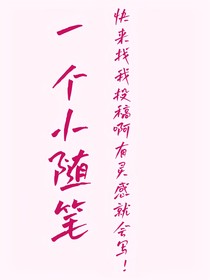 快来找我投稿啊有灵感就会写！
一个小随笔